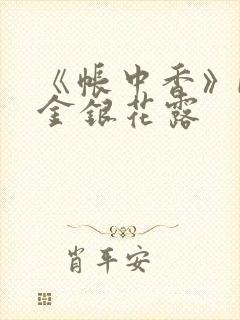 《帐中香》
金银花露
肖平安